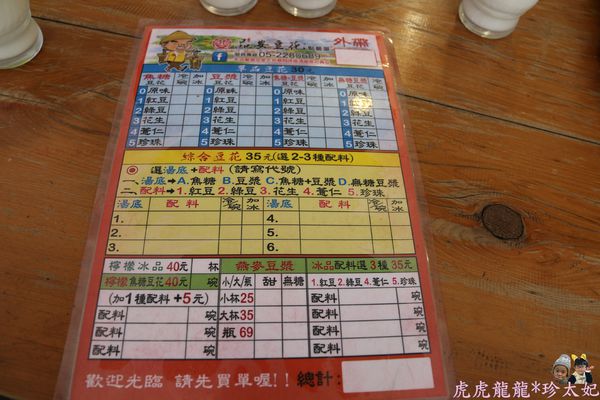 豆花 點餐單 外帶
05-2286689
單品豆花30元
焦糖豆花 冷碗 加冰 豆漿豆花 冷碗 加冰 焦糖+豆漿豆花 冷碗 加冰 無糖豆漿豆花 冷碗 加冰
0原味 0原味 0原味 0原味
1紅豆 1紅豆 1紅豆 1紅豆
2綠豆 2綠豆 2綠豆 2綠豆
3花生 3花生 3花生 3花生
4薏仁 4薏仁 4薏仁 4薏仁
5珍珠 5珍珠 5珍珠 5珍珠
綜合豆花 35元(選2-3種配料)
◉選湯底+配料(請寫代號)
一、湯底→A.焦糖 B.豆漿 C.焦糖+豆漿 D.無糖豆漿
二、配料→1.紅豆 2.綠豆 3.花生 4.薏仁 5.珍珠
湯底 配料 冷碗 加冰 湯底 配料 冷碗 加冰
1. 4.
2. 5.
3. 6.
檸檬冰品40元 杯 燕麥豆漿 冰品配料選3種35元
檸檬焦糖豆花40元 碗 小/大/瓶 甜 無糖 1.紅豆 2.綠豆 3.花生 4.薏仁 5.珍珠
(加1種配料+5元) 碗 小杯25 配料 碗
配料 碗 大杯35 配料 碗
配料 碗 瓶 69 配料 碗
配料 碗 配料 碗
歡迎光臨 請先買單喔!! 總計:
虎虎龍龍*珍太妃